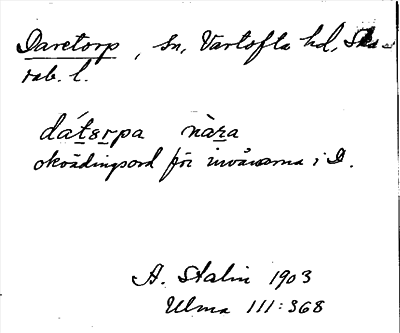 Daretorp, sn, Vartofta hd, Ska-
rab. l.
dáterpa nàra
okvädingsord för invånarna i D.
A. Stalin 1903
Ulma 111:368